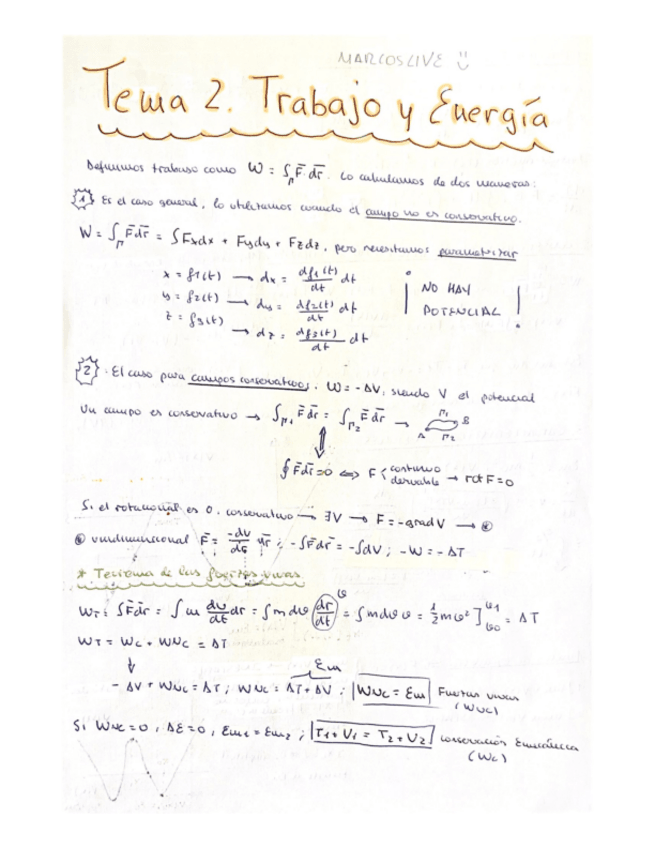 MARCOSLIVE
Tema 2. Trabajo y Energía
Definimos trabajo como W = ∫Γ F̄·d̄r. Lo calculamos de dos maneras:
1 Es el caso general, lo utilizamos cuando el campo no es conservativo.
W = ∫Γ F̄d̄r = ∫Fxdx + Fydy + Fzdz, pero necesitamos parametrizar
x = f1(t) → dx = df1(t)/dt dt
y = f2(t) → dy = df2(t)/dt dt
z = f3(t) → dz = df3(t)/dt dt
¡ NO HAY POTENCIAL !
2 . El caso para campos conservativos. W = -ΔV, siendo V el potencial
Un campo es conservativo → ∫Γ1 F̄d̄r = ∫Γ2 F̄d̄r → A Γ1 B Γ2
⇕
∮F̄d̄r=0 ⇔ F < continuo derivable → rotF=0
Si el rotacional es 0, conservativo → ∃V → F=-gradV → *
* unidimensional F̄ = -dV/dr ; -∫F̄dr = -∫dV ; -W = -ΔT
* Teorema de las fuerzas vivas
WT = ∫F̄dr = ∫m dv/dt dr = ∫m dv (dr/dt) v = ∫mdv v = 1/2 mv² ]v0 v1 = ΔT
WT = WC + WNC = ΔT
↓
Em
- ΔV + WNC = ΔT ; WNC = ΔT + ΔV ; |WNC = Em| Fuerzas vivas
(WNC)
Si WNC = 0, ΔE = 0, Em1 = Em2 ; |T1 + V1 = T2 + V2| conservación E mecánica
(WC)